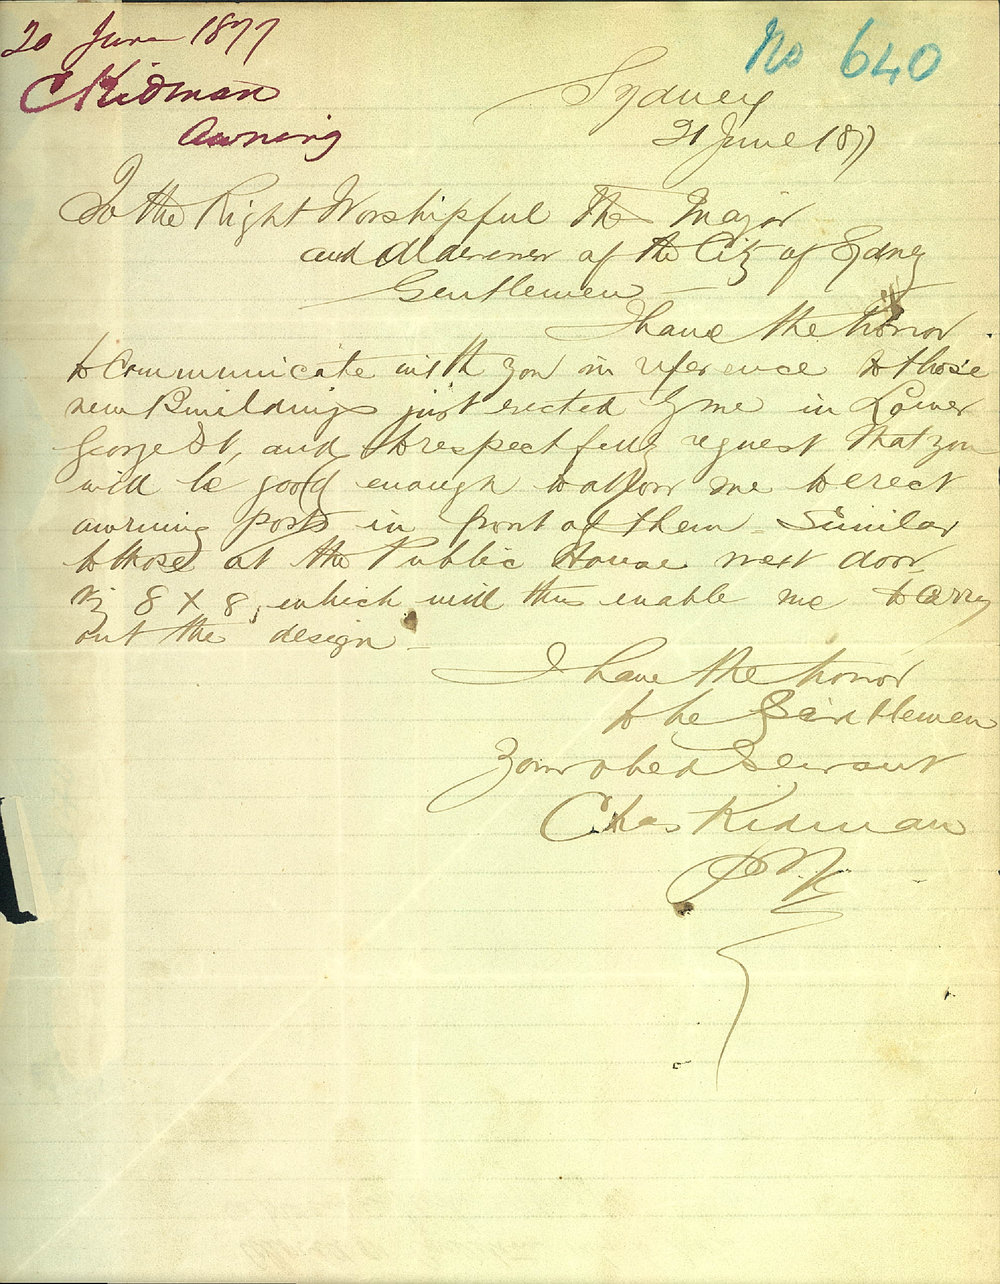 20 June 1877
C Kidman
Awning
No 640
Sydney
21 June 1877
To the Right Worshipful The Mayor
and Aldermen of the City of Sydney
Gentlemen
I have the honor
to communicate with you in reference to those
new Buildings just erected by me in Lower
George St, and to respectfully request that you
will be good enough to allow me to erect
awning posts in front of them similar
to those at the Public House next door
viz 8 X 8, which will thus enable me to carry
out the design
I have the honor
to be Gentlemen
Your obed Servant
Chas Kidman